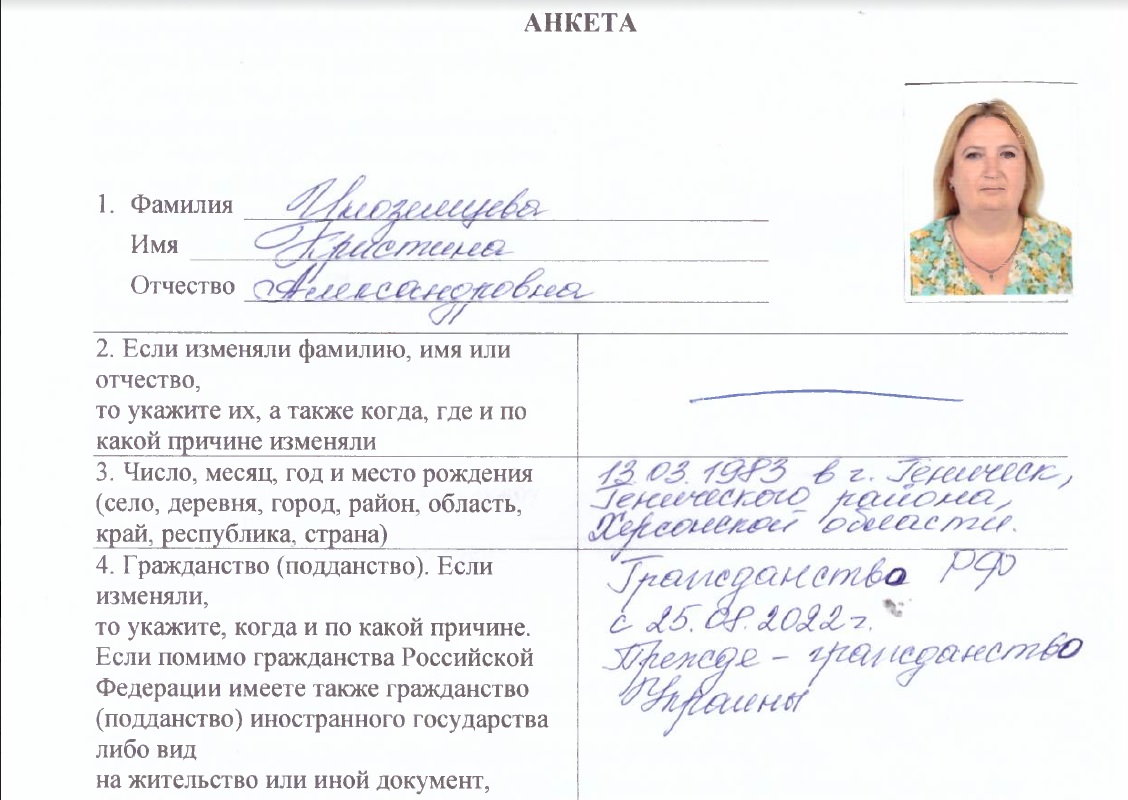 АНКЕТА
1. Фамилия Иноземцева
Имя Кристина
Отчество Александровна
2. Если изменяли фамилию, имя или
отчество,
то укажите их, а также когда, где и по
какой причине изменяли
3. Число, месяц, год и место рождения
(село, деревня, город, район, область,
край, республика, страна)
13.03.1983 в г. Геническ,
Генического района,
Херсонской области.
4. Гражданство (подданство). Если
изменяли,
то укажите, когда и по какой причине.
Если помимо гражданства Российской
Федерации имеете также гражданство
(подданство) иностранного государства
либо вид
на жительство или иной документ,
Гражданство РФ
с 25.08.2022 г.
Прежде – гражданство
Украины